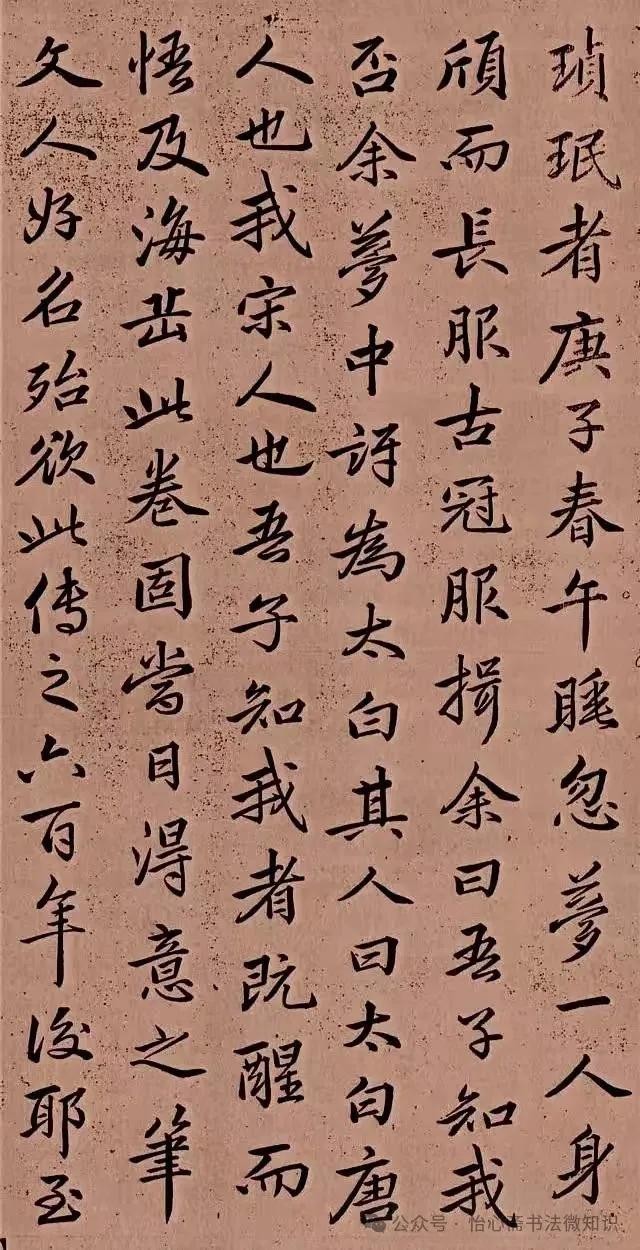 瑱珉者庚子春午睡忽夢一人身
頎而長服古冠服揖余曰吾子知我
否余夢中訝為太白其人曰太白唐
人也我宋人也吾子知我者既醒而
悟及海岳此卷固當日得意之筆
文人好名殆欲此傳之六百年後耶至
公众号·怡心斋书法微知识